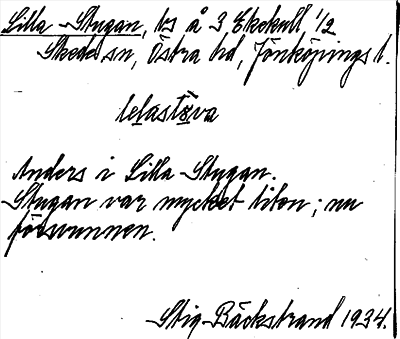 Lilla Stugan, ts å 3 Ekekull 1/2
Skeda sn, Östra hd, Jönköpings l.
lelastova
Anders i Lilla Stugan.
Stugan var mycket liten; nu
försvunnen.
Stig Bäckstrand 1934.